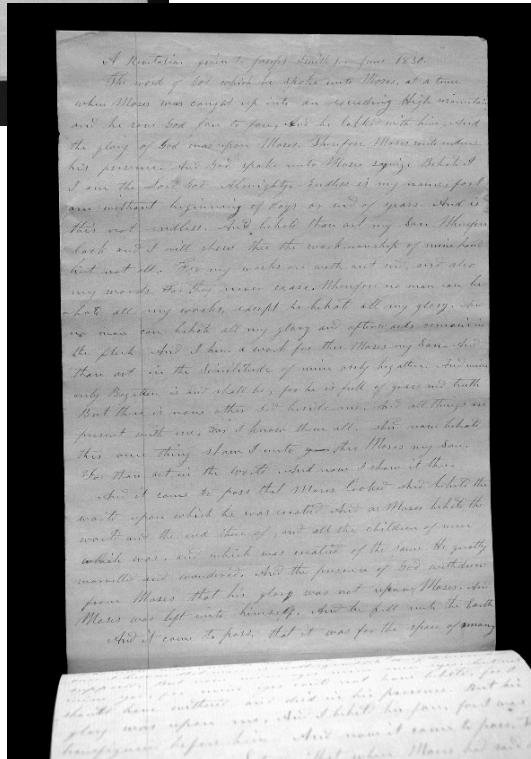 A Revelation given to Joseph Smith jun June 1830.
The word of God which he spoke unto Moses, at a time
when Moses was caught up into an exceeding High mountain
and he saw God face to face, And he talked with him, And
the glory of God was upon Moses. Therefore Moses could endure
his presence. And God spake unto Moses saying, Behold I
I am the Lord God Almighty Endless is my name for I
am without beginning of days or end of years. And is
this not endless. And behold thou art my Son Wherefore
look and I will show thee the workmanship of mine hand
but not all. For my works are without end, and also
my words For they never cease. Wherefore no man can be
hold all my works, except he behold all my glory. And
no man can behold all my glory and afterwards remain in
the flesh. And I have a work for thee Moses my Son. And
thou art in the Similitude of mine only begotten. And mine
only Begotten is and shall be, for he is full of grace and truth
But there is none other God beside me, And all things are
present with me, For I know them all. And now behold
this one thing I show unto thee Moses my Son.
For thou art in the world. And now I show it thee.
And it came to pass that Moses looked And beheld the
world upon which he was created And as Moses beheld the
world and the end there of, and all the children of men
which was, and which was created of the same He greatly
marvelled and wondered. And the presence of God withdrew
from Moses that his glory was not upon Moses. And
Moses was left unto himself. And he fell unto the Earth
And it came to pass, that it was for the space of many
could not have beheld, for I
should have withered and died in his presence. But his
glory was upon me, And I beheld his face, for I was
transfigured before him. And now it came to pass,
that when Moses had said